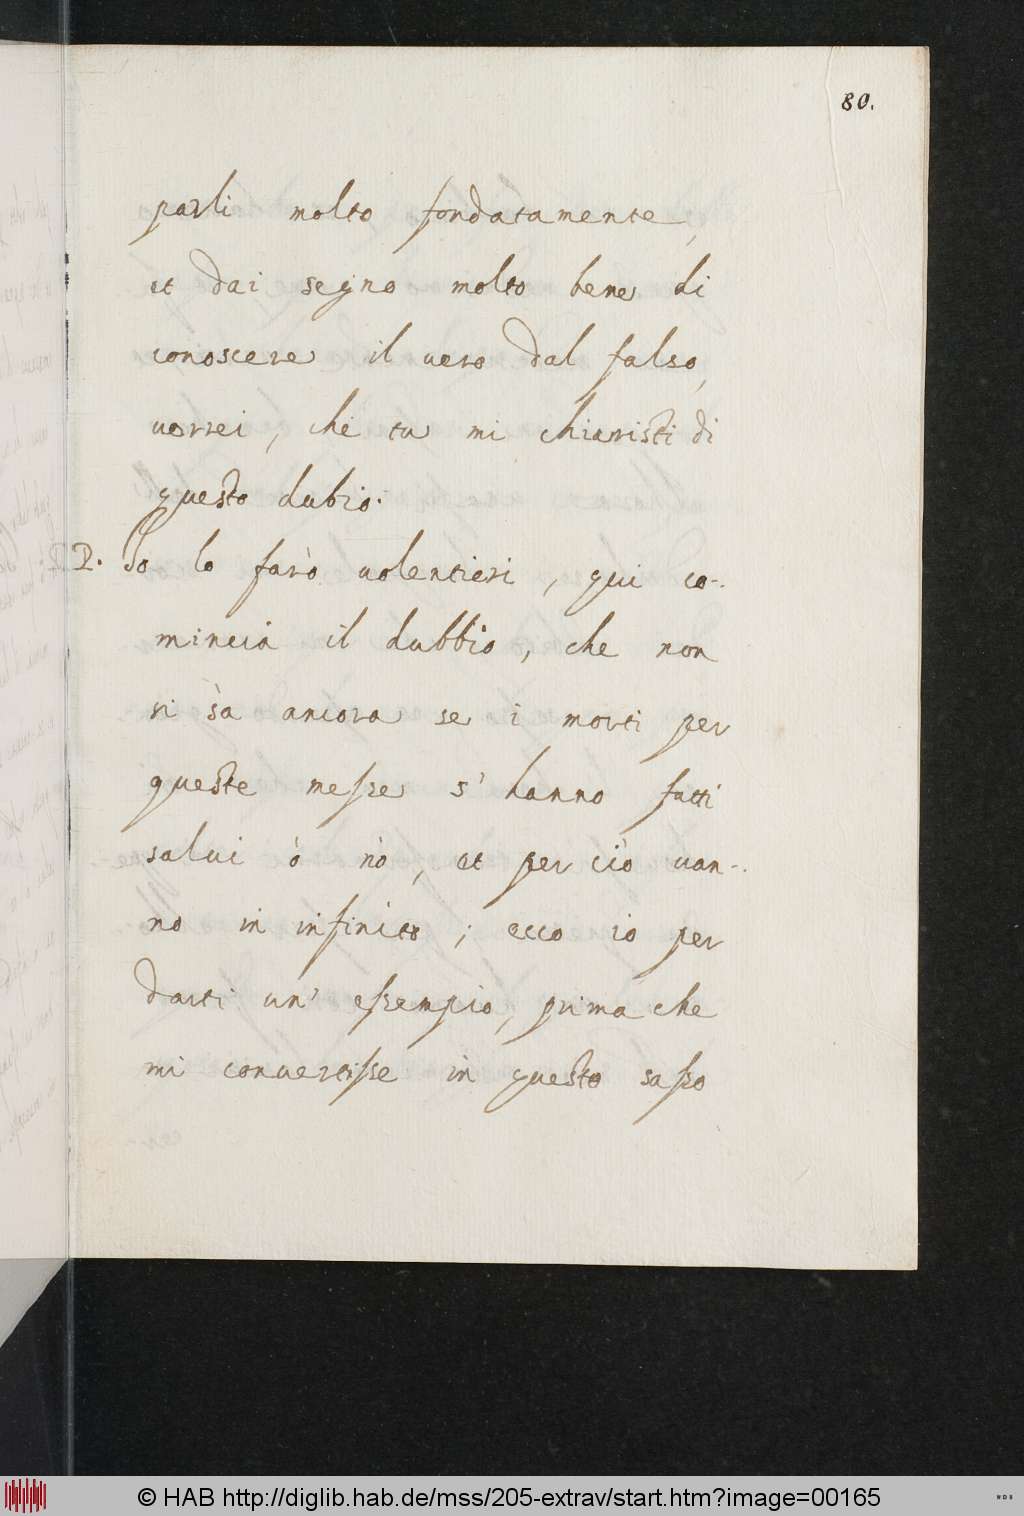 80.
parli molto fondatamente,
et dai segno molto bene di
conoscere il uero dal falso,
uorrei, che tu mi chiaristi di
questo dubio.
P. Io lo farò uolentieri, qui co-
mincia il dubbio, che non
si sà ancora se i morti per
queste messe s'hanno fatti
salui ò nò, et per ciò uan-
no in infinito; ecco io per
darti un' essempio, prima che
mi conuertisse in questo sasso
© HAB http://diglib.hab.de/mss/205-extrav/start.htm?image=00165